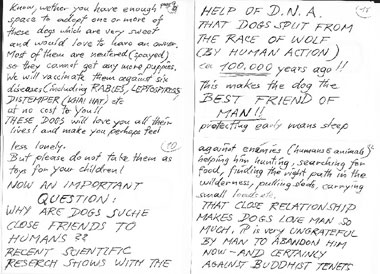 Know, wether you have enough
space to adopt one or more of
these dogs which are very sweet
and would love to have an owner.
Most of them are neutered (spayed)
so they cannot get any more puppies.
We will vaccinate them against six
diseases (including RABIES, LEPTOSPIROSIS,
DISTEMPER etc
at no cost to You!!
THESE DOGS will love you all their
lives! and make you perhaps feel
less lonely.
But please do not take them as
toys for your children!
NOW AN IMPORTANT
QUESTION:
WHY ARE DOGS SUCHE
CLOSE FRIENDS TO
HUMANS ??
RECENT SCIENTIFIC
RESERCH SHOWS WITH THE
HELP OF D.N.A.
THAT DOGS SPLIT FROM
THE RACE OF WOLF
(BY HUMAN ACTION)
ca 100.000 years ago!!
This makes the dog the
BEST FRIEND OF
MAN!!
protecting early mans sleep
against enemies (humans & animals)
helping him hunting, searching for
food, finding the right path in the
wilderness, pulling sleds, carrying
small loads etc.
THAT CLOSE RELATIONSHIP
MAKES DOGS LOVE MAN SO
MUCH. IT is very UNGRATEFUL
BY MAN TO ABANDON HIM
NOW - AND CERTAINLY
AGAINST BUDDHIST TENETS